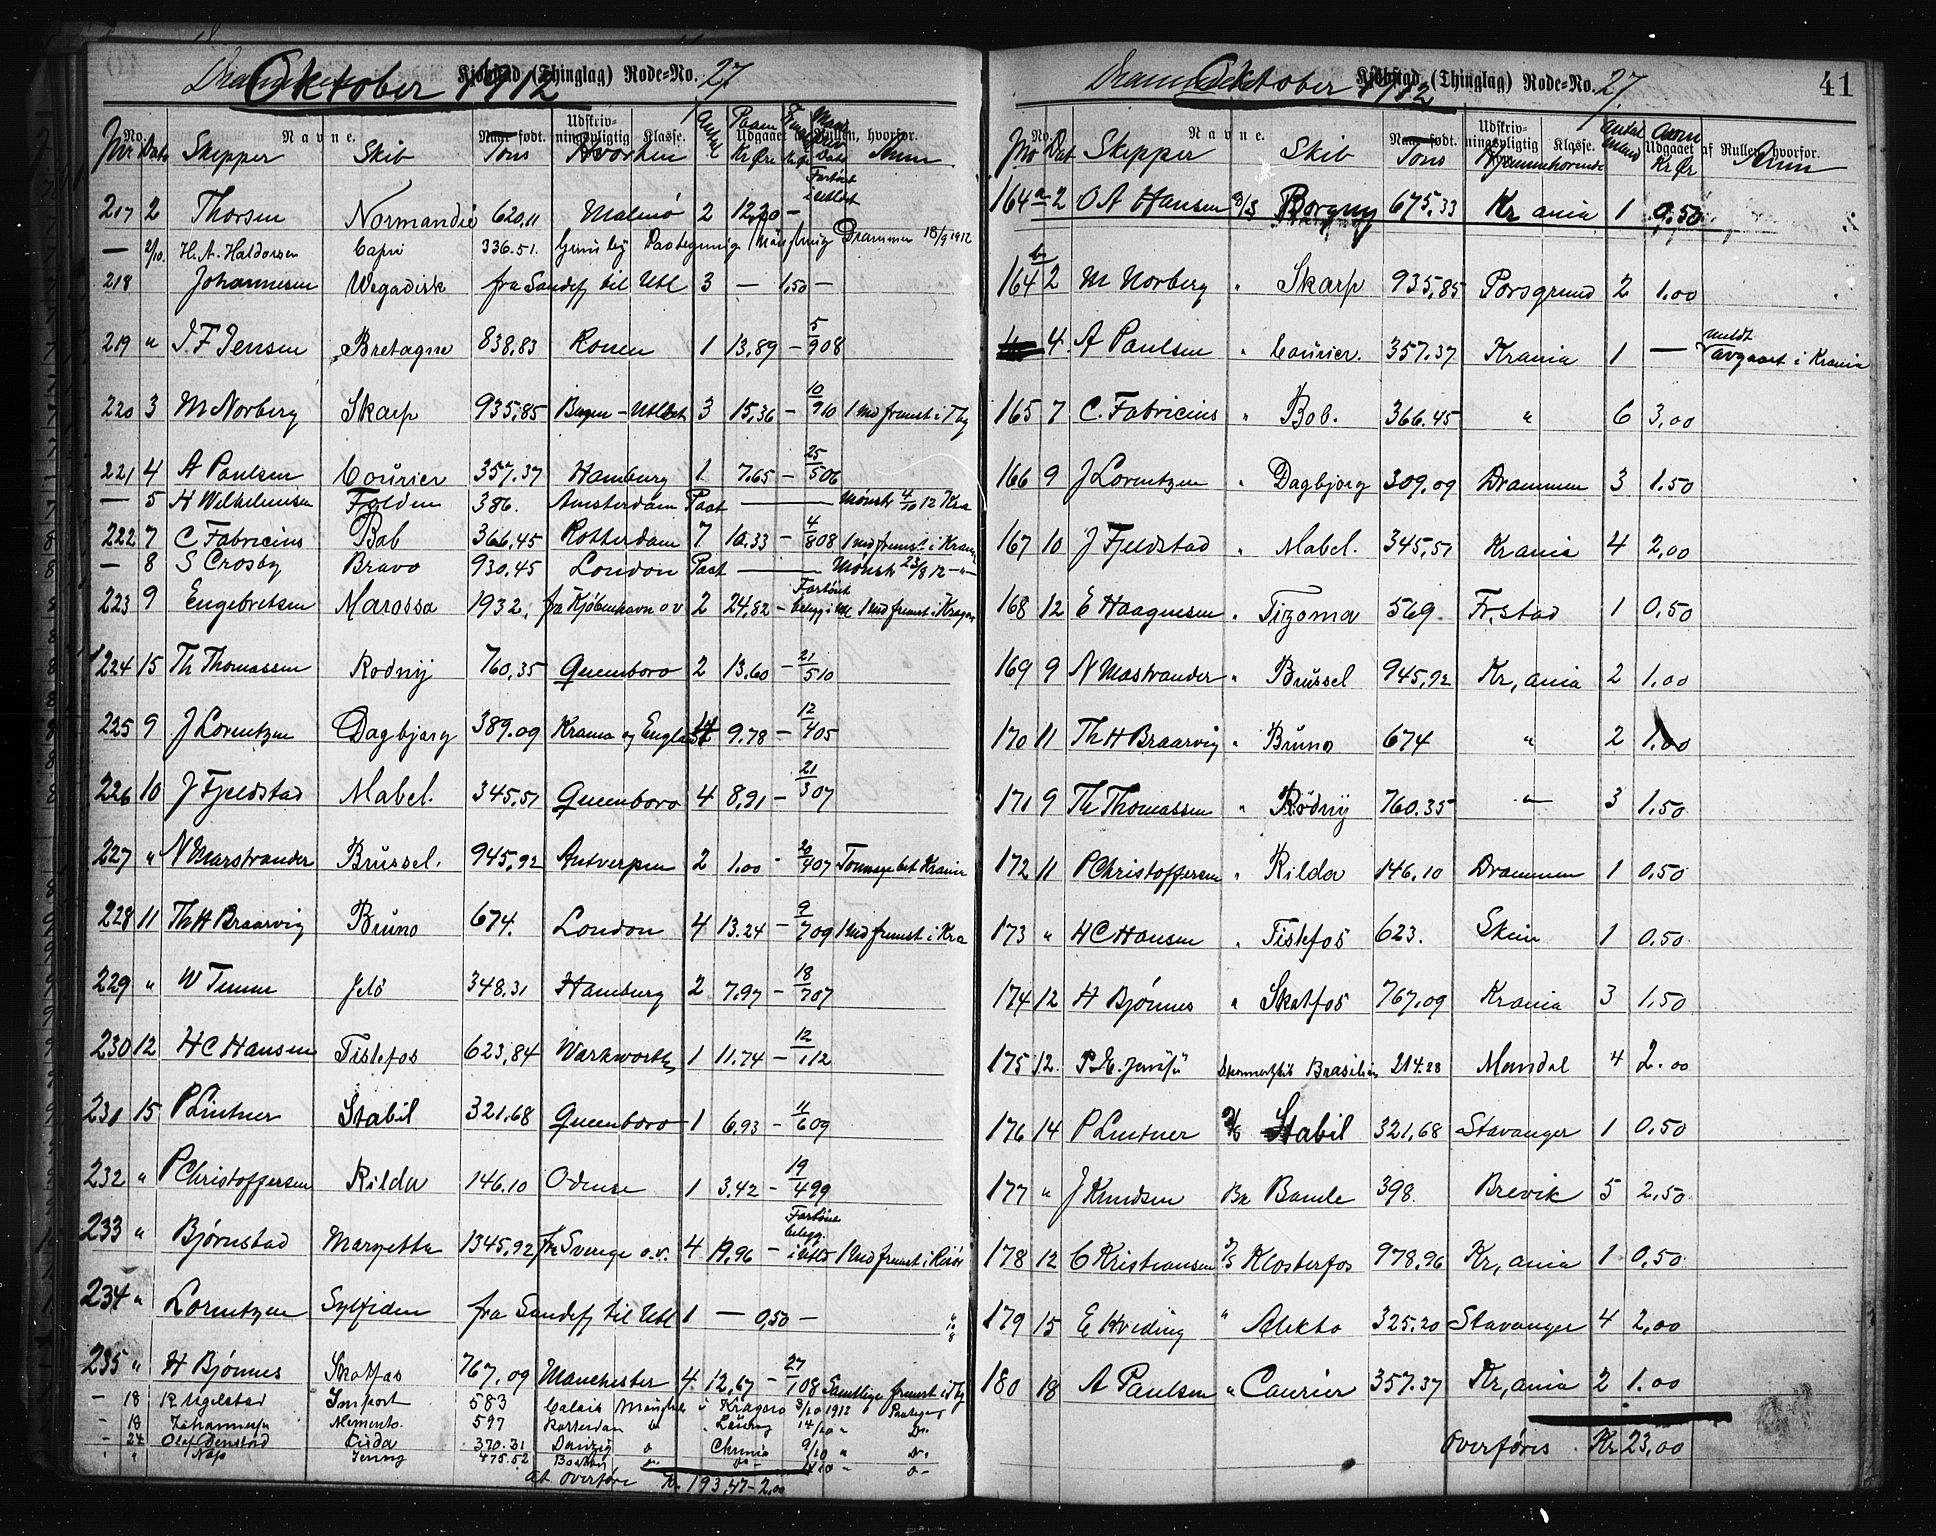 Oktober 1912 Kjöbstad (Thinglag) Rode=No. 27
No. Navne. Naar født. Udskrivningspligtig Klasse. Udgaaet af Rullen, hvorfor.
Nr Dato Skipper Skib Tons Hvorhen Antal Kr Øre Anm
217 2 Thorsen Normandie 620,11 Malmö 2 12,20 — Fartöiet i Utldet
— 2/10. H. A. Haldorsen Capri 336.51. Drammen 18/9 1912
218 Johannesen Wegadesk fra Sandefj til Utl 3 — 1,50 —
219 " J. F Jensen Bretagne 838,83 Rouen 1 13,89 — 5/908
220 3 M Norberg Skarp 935,85 Bergen - Utlandet 3 15,36 — 10/910 1 md fremst i Tbg
221 4 A Paulsen Courier 357.37 Hamburg 1 7.65 — 25/506
— 5 H Wilhelmsen Folden 386. Amsterdam Paat — Mönst 4/10 12 Kra
222 7 C. Fabricius Bob 366.45 Rotterdam 7 10.33 — 4/808 1 md fremst i Krania
— 8 S Crosby Bravo 930.45 London Paat — Mönst 23/8 12 —"—
223 9 Engebretsen Marossa 1932, fra Kjöbenhavn o v 2 24,82 — Fartöiet belegg i Utl 1 md fremst i Kragerö
224 15 Th Thomassen Rodnÿ 760,35 Queenboro 2 13.60 — 21/510
225 9 J Lorentzen Dagbjørg 389.09 Krania og England 4 9.78 — 12/405
226 10 J Fjeldstad Mabel. 345.51 Queenboro 4 8,91 — 21/307
227 " N Marstrander Brüssel. 945,92 Antverpen 2 1.00 - 20/407 Tonnage bet Krania
228 11 Th H Braarvig Bruno 674. London 4 13.24 — 9/709 1 md fremst i Kra
229 " W Jelö 348.31 Hamburg 2 7.97 — 18/707
230 12 H C Hansen Tistefos 623,84 Warkworth 1 11.74 — 12/112
231 15 P Lintner Stabil 321.68 Queenboro 1 6.93 — 11/609
232 " P Christoffersen Rilda 146.10 Odense 1 3.42 — 19/499
233 " Bjørnstad Margetta 1345,92 fra Sverige o.v. 4 19.96 — Fartöiet belegg. i Utld 1 Md fremst i Risör
234 " Lorentzen Sylfiden fra Sandefj til Utl 1 — 0,50 —
235 " H Bjønnes Skotfos 767.09 Manchester 4 12,67 — 27/108 Samtlige fremst i Tbg
— 18 R Ugelstad Import 583 Calais Mönstret i Kragerö 3/10 1912
- 18 Johannesen Memento. 597 Rotterdam 14/10 "
- 24 Olaf Rilda 370.31 Danzig Chrania 9/10 "
- " Jenny 475.52
at overföre Kr. 193,47 - 2,00
41
Oktober 1912 Kjöbstad (Thinglag) Rode=No. 27
No. Navne. Naar født. Udskrivningspligtig Klasse. Udgaaet af Rullen, hvorfor.
No Dat Skipper Skib Tons Hjemmehörende Antal Kr Ør Anm
164 a 2 O A Hansen D/S Borgny 675.33 Kr,ania 1 0.50
164 b 2 M Norberg " Skarp 935,85 Porsgrund 2 1.00
4. A Paulsen " Courier. 357.37 Krania 1 — meldt avgaaet i Krania
165 7 C. Fabricius " Bob. 366.45 " 6 3,00
166 9 J Lorentzen " Dagbjørg 309.09 Drammen 3 1.50
167 10 J Fjeldstad " Mabel. 345,51 Krania 4 2,00
168 12 E Haagensen " Tizoma 569 Fr.stad 1 0.50
169 9 N Mastrander " Brüssel 945,92 Kr,ania 2 1.00
170 11 Th H Braarvig " Bruno 674 " 2 1.00
171 9 Th Thomassen " Rödnÿ 760.35 —"— 3 1,50
172 11 P Christoffersen " Rilda 146.10 Drammen 1 0,50
173 " H C Hansen " Tistefos 623. Skien 1 0.50
174 12 H Bjönnes " Skotfos 767.09 Krania 3 1.50
175 12. Brasilia 214.28 Mandal 4 2.00
176 14 P Lintner D/S Stabil 321,68 Stavanger 1 0.50
177 " J Knudsen Bk Bamle 398. Brevik 5 2,50
178 12 C Kristiansen D/S Klosterfos 978.96 Kr,ania 1 0,50
179 15 E Kveding " Alekto 325.20 Stavanger 4 2,00
180 18 A Paulsen " Courier 357.37 Kr,ania 2 1.00
Overføris Kr 23,00